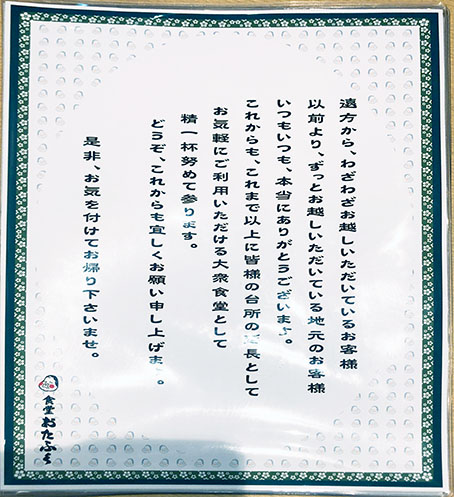 遠方から、わざわざお越しいただいているお客様
以前より、ずっとお越しいただいている地元のお客様
いつもいつも、本当にありがとうございます。
これからも、これまで以上に皆様の台所の延長として
お気軽にご利用いただける大衆食堂として
精一杯努めて参ります。
どうぞ、これからも宜しくお願い申し上げます。
是非、お気を付けてお帰り下さいませ。
食堂おたふく